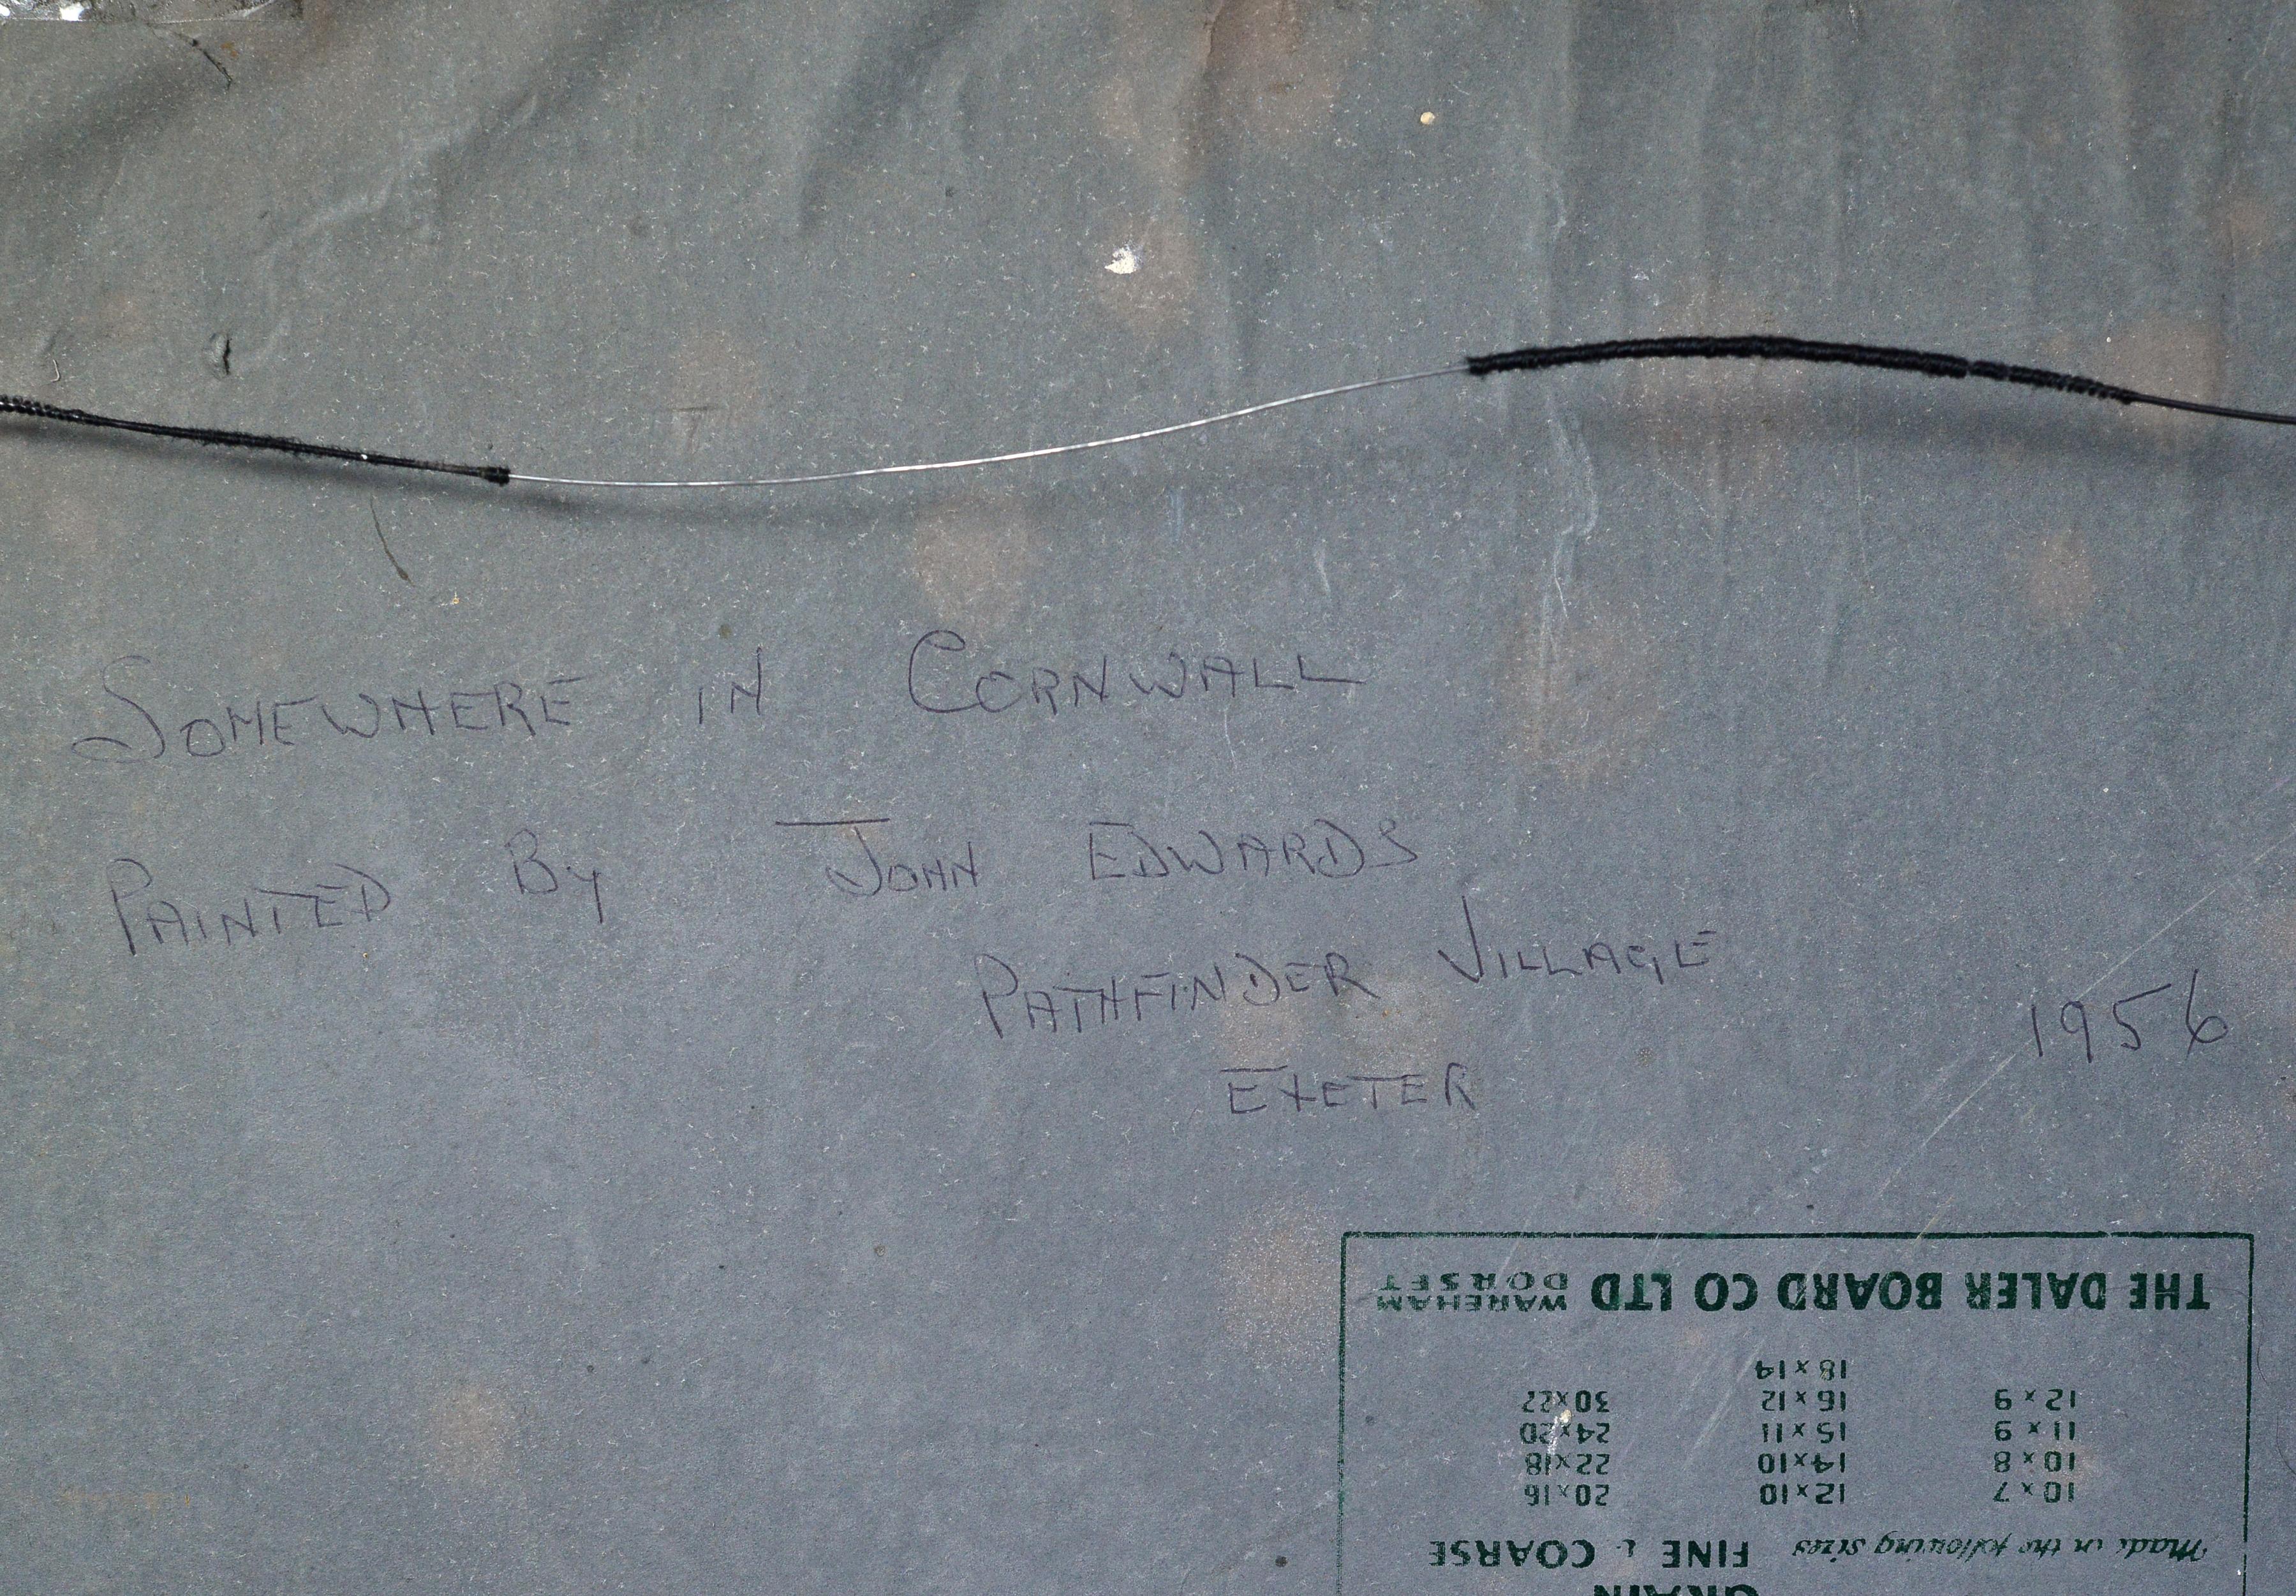 SOMEWHERE IN CORNWALL
PAINTED By JOHN EDWARDS
PATHFINDER VILLAGE
1956
EXETER
GRAIN
Made in the following sizes FINE & COARSE
10 x 7 12 x 10 20 x 16
10 x 8 14 x 10 22 x 18
11 x 9 15 x 11 24 x 20
12 x 9 16 x 12 30 x 22
18 x 14
THE DALER BOARD CO LTD WAREHAM DORSET